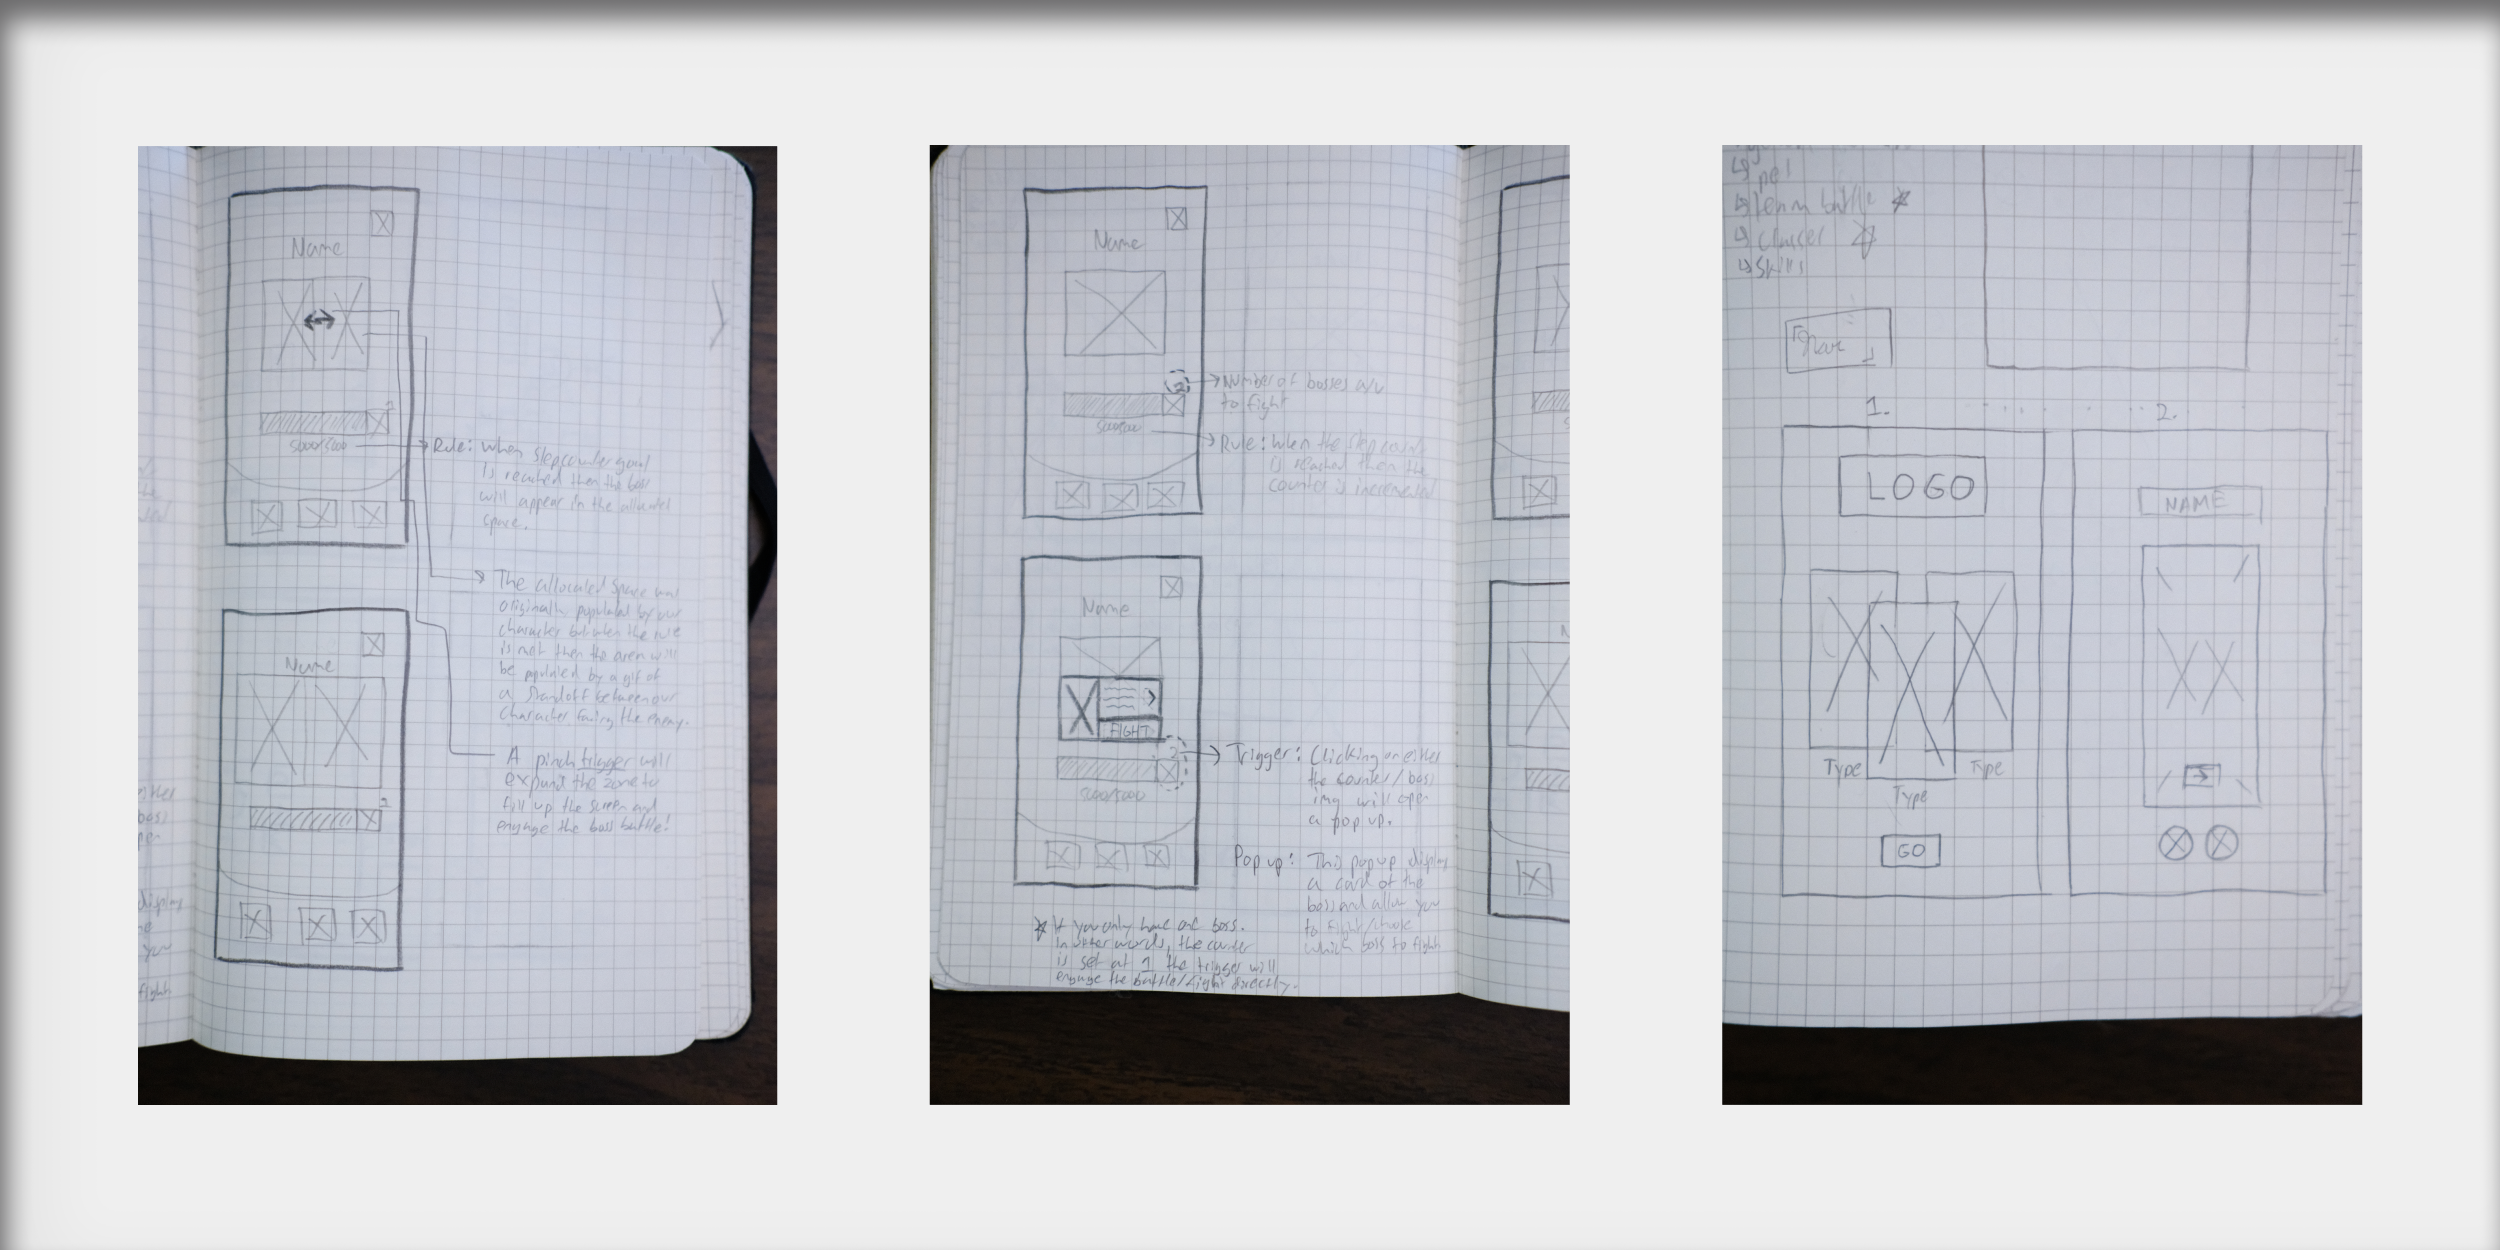 Name
5000/5000
Rule: when stepcounter goal
is reached then the boss
will appear in the allocated
space.
The allocated space was
originally populated by our
character but when the rule
is met then the area will
be populated by a gif of
a standoff between our
character facing the enemy.
Name
2
A pinch trigger will
expand the zone to
fill up the screen and
engage the boss battle!
Name
2
Number of bosses a/v
to fight
5000/5000
Rule: When the step count
is reached then the
counter is incremented
Name
FIGHT
2
5000/5000
Trigger: Clicking on either
the counter/boss
img will open
a pop up.
Pop up: This popup display
a card of the
boss and allow you
to fight/choose
which boss to fight
* If you only have one boss.
In other words, the counter
is set at 1 the trigger will
engage the battle/fight directly.
team battle *
classes
skills
1.
2.
LOGO
NAME
Type
Type
Type
GO